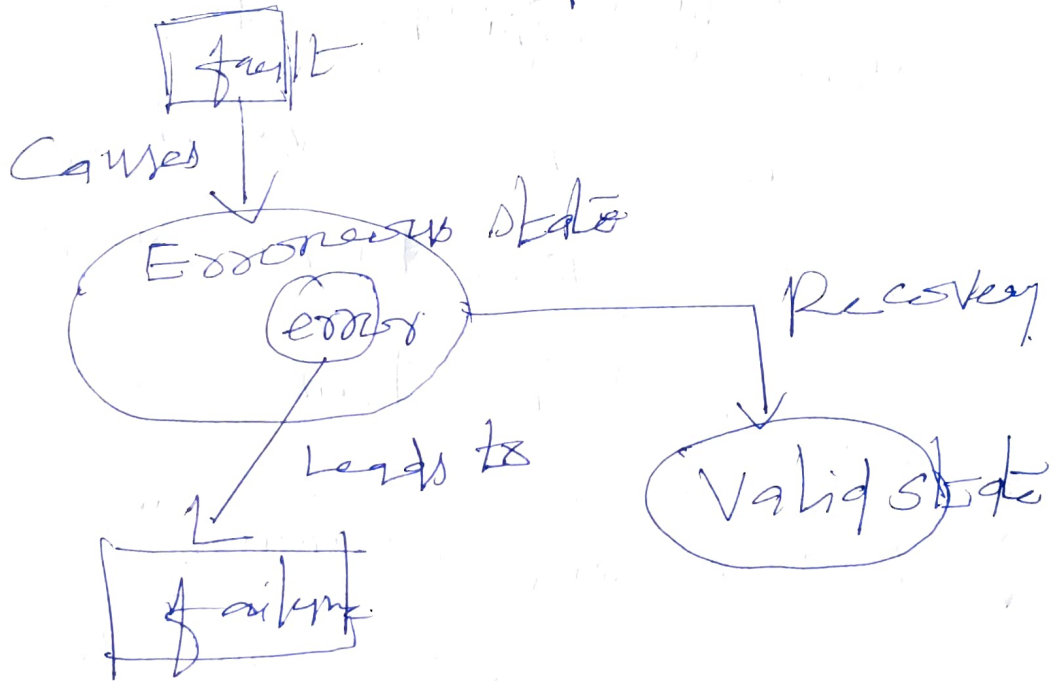 fault
Causes
Erroneous state
error
Recovery
Leads to
Valid state
failure